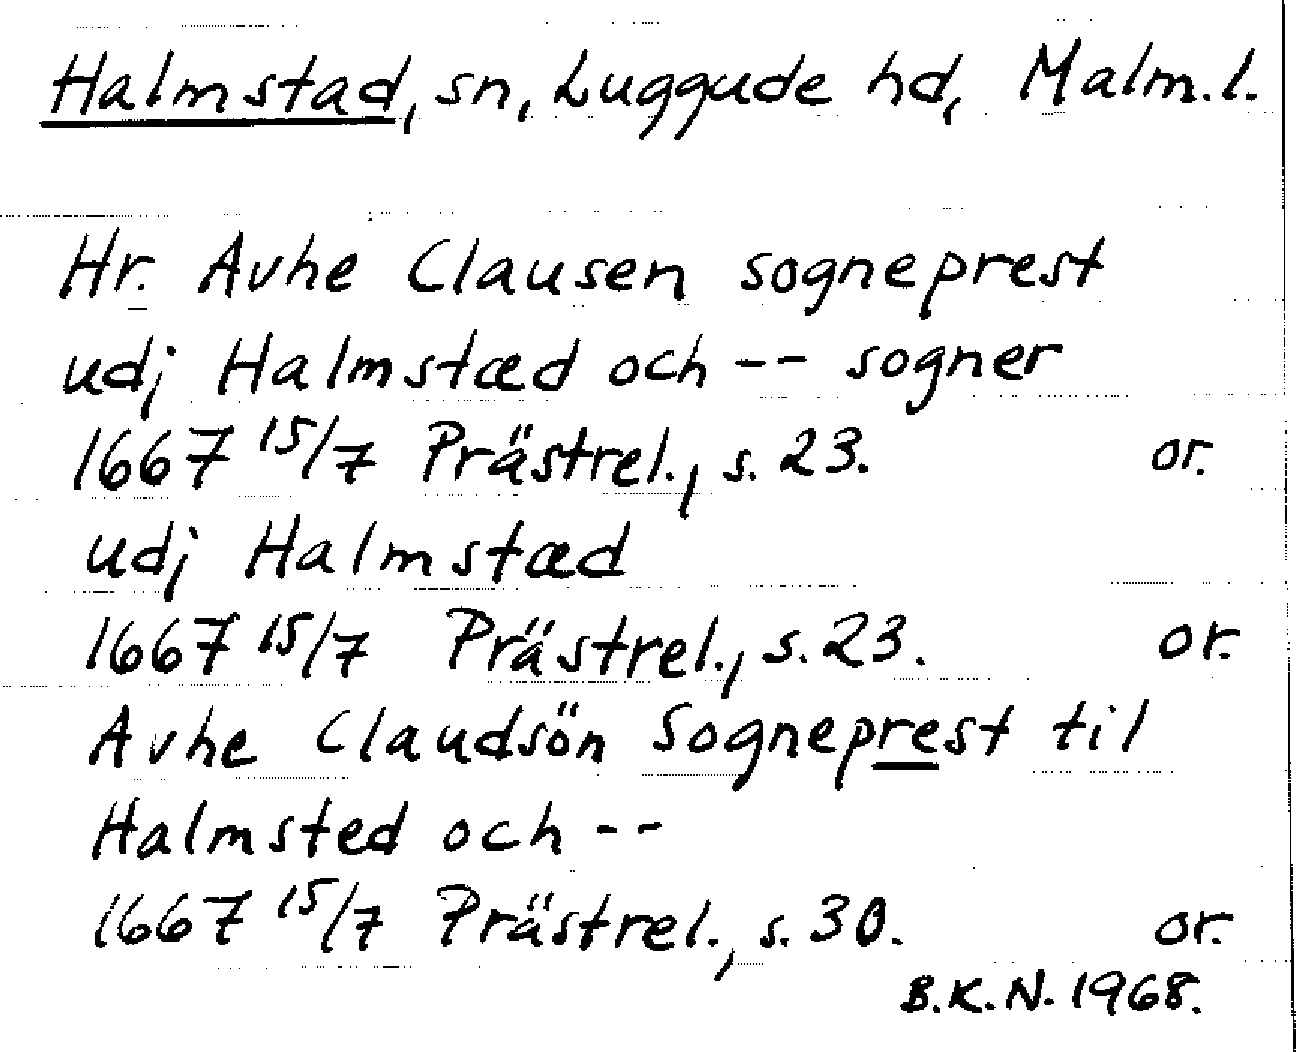 Halmstad, sn, Luggude hd, Malm.l.
Hr. Avhe Clausen sogneprest
udj Halmstæd och -- sogner
1667 15/7 Prästrel., s. 23. or.
udj Halmstæd
1667 15/7 Prästrel., s. 23. or.
Avhe Claudsön Sogneprest til
Halmsted och --
1667 15/7 Prästrel., s. 30. or.
B.K.N. 1968.